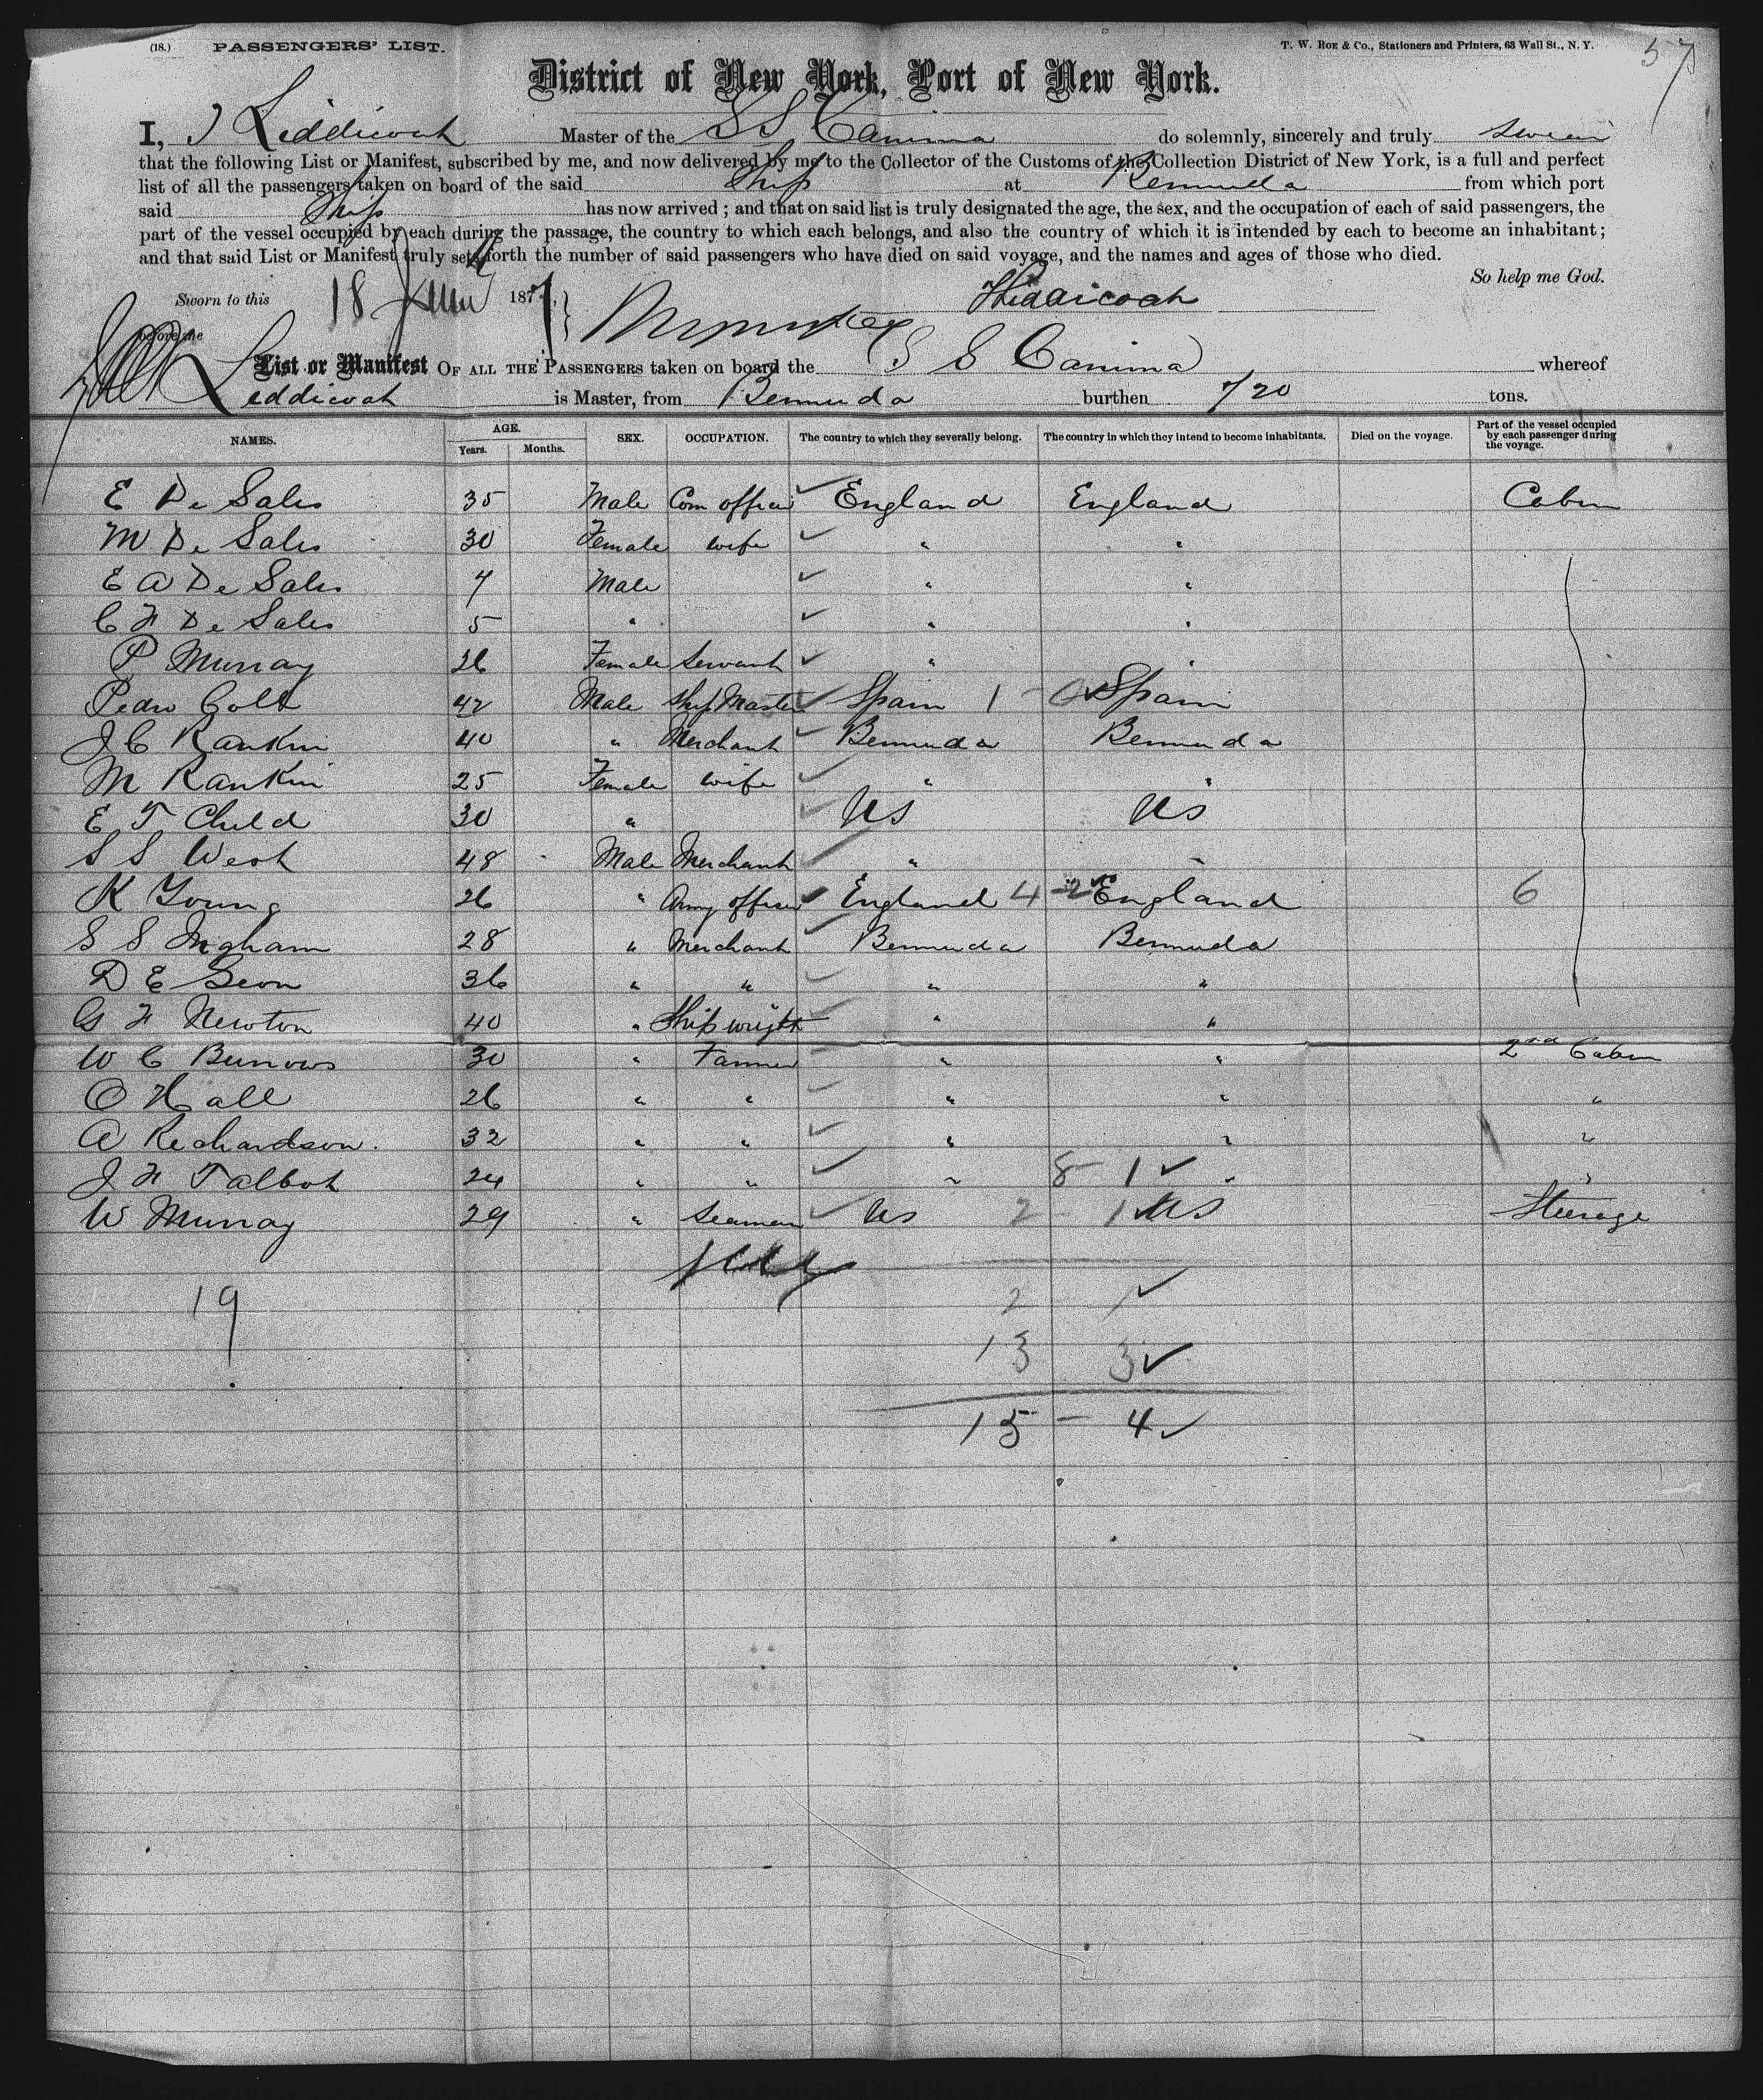 (18.) PASSENGERS' LIST. T. W. ROE & CO., Stationers and Printers, 63 Wall St., N. Y. 57
District of New York, Port of New York.
I, J Liddicoat Master of the SS Canima do solemnly, sincerely and truly swear
that the following List or Manifest, subscribed by me, and now delivered by me to the Collector of the Customs of the Collection District of New York, is a full and perfect
list of all the passengers taken on board of the said Ship at Bermuda from which port
said Ship has now arrived; and that on said list is truly designated the age, the sex, and the occupation of each of said passengers, the
part of the vessel occupied by each during the passage, the country to which each belongs, and also the country of which it is intended by each to become an inhabitant;
and that said List or Manifest truly sets forth the number of said passengers who have died on said voyage, and the names and ages of those who died.
So help me God.
Sworn to this 18 June 1877, Liddicoat
before me
List or Manifest OF ALL THE PASSENGERS taken on board the S S Canima whereof
Liddicoat is Master, from Bermuda burthen 720 tons.
NAMES. AGE. Years. Months. SEX. OCCUPATION. The country to which they severally belong. The country in which they intend to become inhabitants. Died on the voyage. Part of the vessel occupied by each passenger during the voyage.
E De Sales 35 Male Com officer England England Cabin
M De Sales 30 Female wife " "
E A De Sales 7 Male " "
C F De Sales 5 " " "
P Murray 26 Female Servant " "
Pedro Colt 42 Male Ship Master Spain 1 - 0 Spain
J C Rankin 40 " Merchant Bermuda Bermuda
M Rankin 25 Female wife " "
E T Child 30 " US US
S S West 48 Male Merchant " "
K Young 26 " Army officer England 4 - 2 England 6
S S Ingham 28 " Merchant Bermuda Bermuda
D E Seon 36 " " " "
G F Newton 40 " Shipwright " "
W C Burrows 30 " Farmer " " 2nd Cabin
O Hall 26 " " " " "
A Richardson. 32 " " " " "
J F Talbot 24 " " " 8 - 1 " "
W Murray 29 " Seaman US 2 - 1 US Steerage
19
2 1
13 3
15 - 4